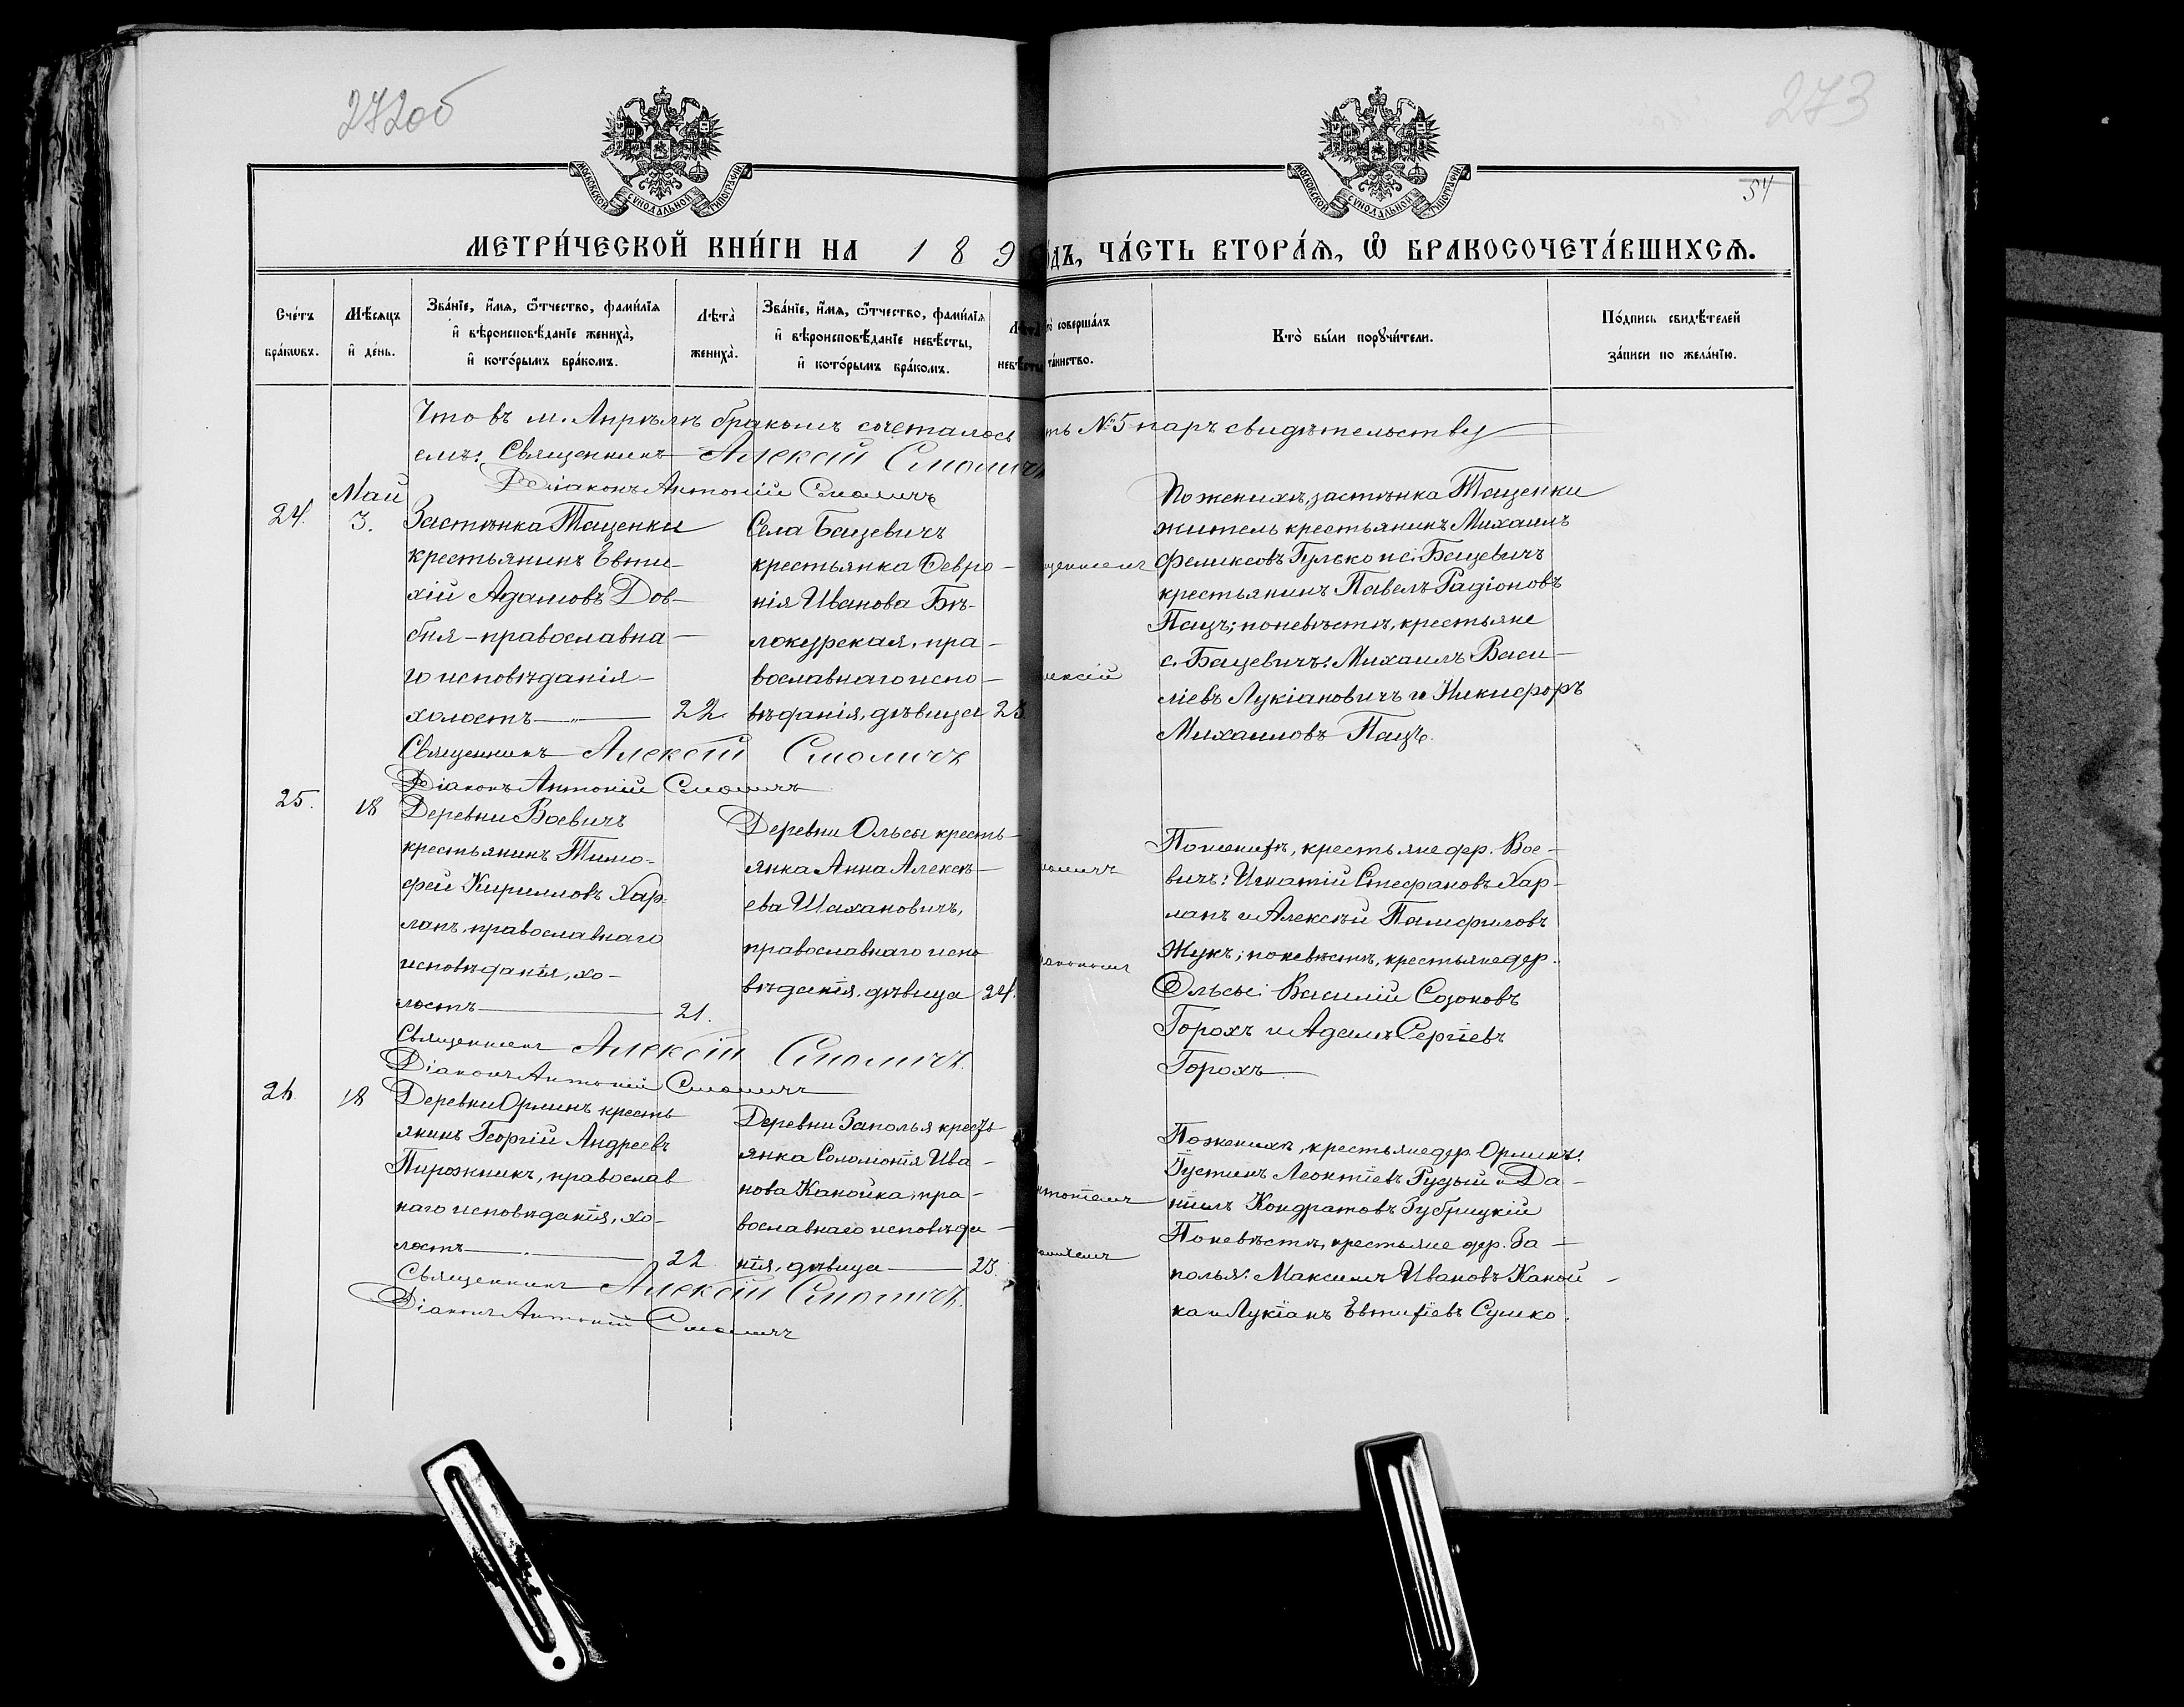 272об
273
54
МОСКОВСКОЙ СѴНОДАЛЬНОЙ ТИПОГРАФІИ
МОСКОВСКОЙ СѴНОДАЛЬНОЙ ТИПОГРАФІИ
МЕТРИ́ЧЕСКОЙ КНИ́ГИ НА 1 8 9
ОДЪ, ЧА́СТЬ ВТОРА́Ѧ, Ѡ҆ БРАКОСОЧЕТА́ВШИХСѦ.
Сче́тъ
бра́кѡвъ.
Мѣ́сяцъ
и҆ де́нь.
Зва́нїе, и҆́мѧ, ѻ҆́тчество, фами́лїѧ
и҆ вѣроисповѣ́данїе жениха̀,
и҆ кото́рымъ бра́комъ.
Лѣта̀
жениха̀.
Зва́нїе, и҆́мѧ, ѻ҆́тчество, фами́лїѧ
и҆ вѣроисповѣ́данїе невѣ́сты,
и҆ кото́рымъ бра́комъ.
Лѣта
невѣсты
то̀ соверша́лъ
та́инство.
Кто̀ бы́ли порꙋчи́тели.
По́дпись свидѣ́телей
за́писи по жела́нїю.
Что въ м. Апрѣлѣ бракомъ сочеталось
ть №5 паръ свидѣтельству
емъ: Священникъ Алексій Смоличъ
Діаконъ Антоній Смоличъ
24.
Май
3.
Застѣнка Тащенки
крестьянинъ Евти-
хій Адамовъ Дов-
бня - православна-
го исповѣданія -
холостъ
22.
Села Бацевичъ
крестьянка Февро-
нія Иванова Бѣ-
локурская, пра-
вославнаго испо-
вѣданія, дѣвица
23.
щенникъ
лексій
По женихѣ, застѣнка Тащенки
житель крестьянинъ Михаилъ
Феликсовъ Гулько и с. Бацевичъ
крестьянинъ Павелъ Радіоновъ
Пацъ; по невѣстѣ, крестьяне
с. Бацевичъ: Михаилъ Васи-
ліевъ Лукіановичъ и Никифоръ
Михаиловъ Пацъ.
Священникъ Алексій Смоличъ
Діаконъ Антоній Смоличъ
25.
18
Деревни Воевичъ
крестьянинъ Тимо-
фей Кирилловъ Хар-
лапъ, православнаго
исповѣданія, хо-
лостъ
21.
Деревни Ольсы кресть-
янка Анна Алексѣ-
ева Шаханович,
православнаго испо
вѣданія, дѣвица
24.
моличъ
По женихѣ, крестьяне дер. Вое-
вичъ: Игнатій Стефановъ Хар-
лапъ и Алексѣй Памфиловъ
Жукъ; по невѣстѣ, крестьяне дер.
Ольсы: Василій Созоновъ
Горохъ и Адамъ Сергіевъ
Горохъ
Священникъ Алексій Смоличъ.
Діаконъ Антоній Смоличъ
26.
18
Деревни Орлинъ кресть
янинъ Георгій Андреевъ
Пирожникъ, православ
наго исповѣданія, хо-
лостъ
22.
Деревни Заполья кресть
янка Соломонія Ива-
нова Канойка, пра-
вославнаго исповѣда-
нія, дѣвица
23.
нтоніемъ
По женихѣ, крестьяне дер. Орлинъ:
Іустинъ Леонтіевъ Рудый и Да-
ніилъ Кондратовъ Зубрицкій
По невѣстѣ, крестьяне дер. За-
полья: Максимъ Ивановъ Каной-
ка и Лукіанъ Евтихіевъ Сушко.
Священникъ Алексій Смоличъ.
Діаконъ Антоній Смоличъ